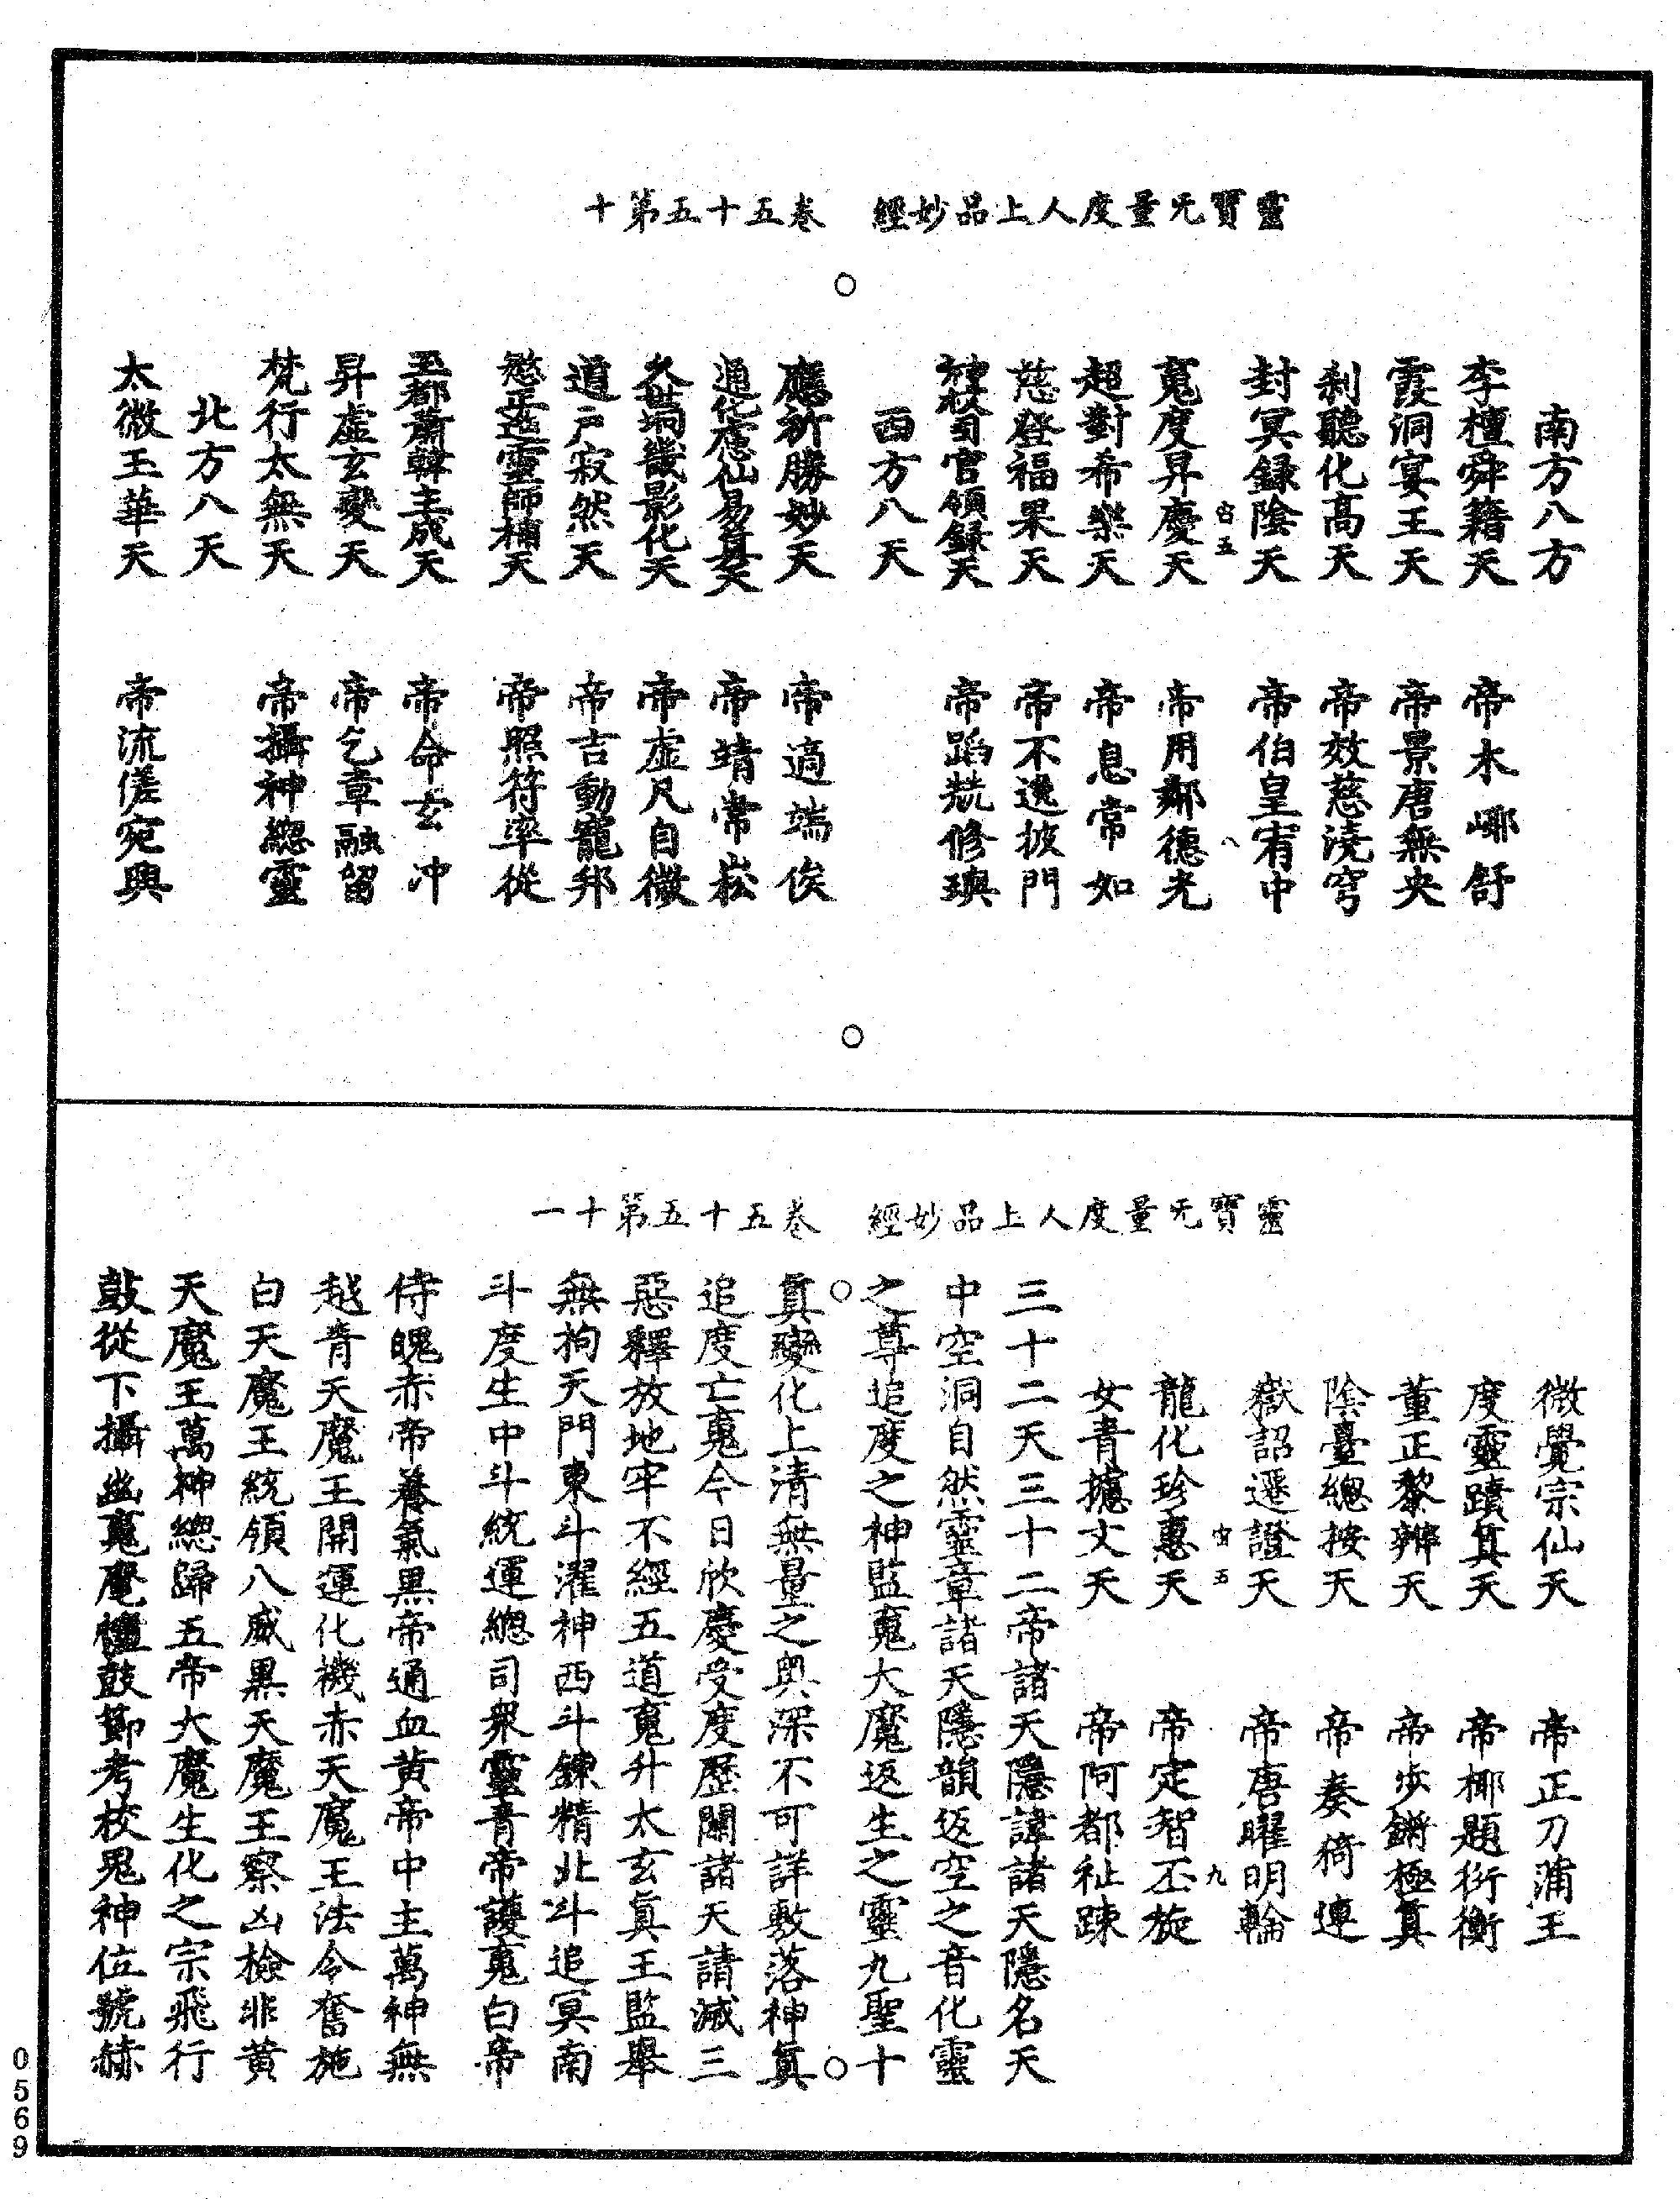 靈寶无量度人上品妙經　卷五十五第十
南方八方
李檀舜籍天　帝木㖿舒
霞洞宴王天　帝景唐無央
刹聽化高天　帝效慈澆穹
封冥録陰天　帝伯皇宥中
宙五　八
䰟度昇慶天　帝用鄰德光
超對希樂天　帝息常如
慈登福果天　帝不逸披門
司官領録天　帝蹈兟修璵
西方八天
應祈勝妙天　帝適端俟
通化應仙易真天　帝靖常崧
久世垌畿影化天　帝虛尺自微
道戸寂然天　帝吉動寵邦
愍正迄靈師補天　帝照符率從
玉都蕭韓主成天　帝命玄冲
昇虛玄變天　帝乞章融留
梵行太無天　帝攝神總靈
北方八天
太微玉華天　帝流傞宛興
靈寶无量度人上品妙經　卷五十五第十一
微覺宗仙天　帝正刀蒲王
度靈蹟真天　帝椰題衍衡
董正黎辨天　帝步鏘極真
陰臺總按天　帝奏猗連
嶽詔遷證天　帝唐曜明輪
宙五　九
龍化珍惠天　帝定智丕旋
女青攄文天　帝阿都祉踈
三十二天三十二帝諸天隱諱諸天隱名天
中空洞自然靈章諸天隱韻返空之音化靈
之尊追度之神監䰟大魔返生之靈九聖十
真變化上清無量之奥深不可詳敷落神真
追度亡䰟今日欣慶受度歷關諸天請滅三
惡釋放地牢不經五道䰟升太玄真王監舉
無拘天門東斗濯神西斗鍊精北斗追冥南
斗度生中斗統運總司衆靈青帝護䰟白帝
侍魄赤帝養氣黑帝通血黄帝中主萬神無
越青天魔王開運化機赤天魔王法令奮施
白天魔王統領八威黑天魔王察凶檢非黄
天魔王萬神總歸五帝大魔生化之宗飛行
鼓從下攝幽䰟麾幢鼓節考校鬼神位號赫
0569